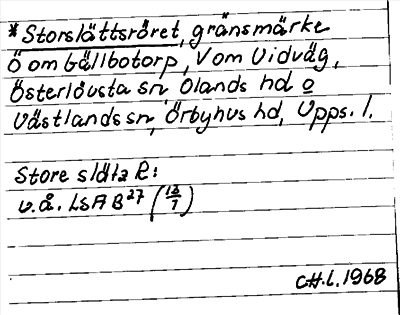 *Storslättsröret, gränsmärke
Ö om Gällbotorp, V om Vidväg,
Österlövsta sn Olands hd o
Västlands sn, Örbyhus hd, Upps. l.
Store släta R:
u.å. LSA B²⁷ (12/7)
C.H.L. 1968